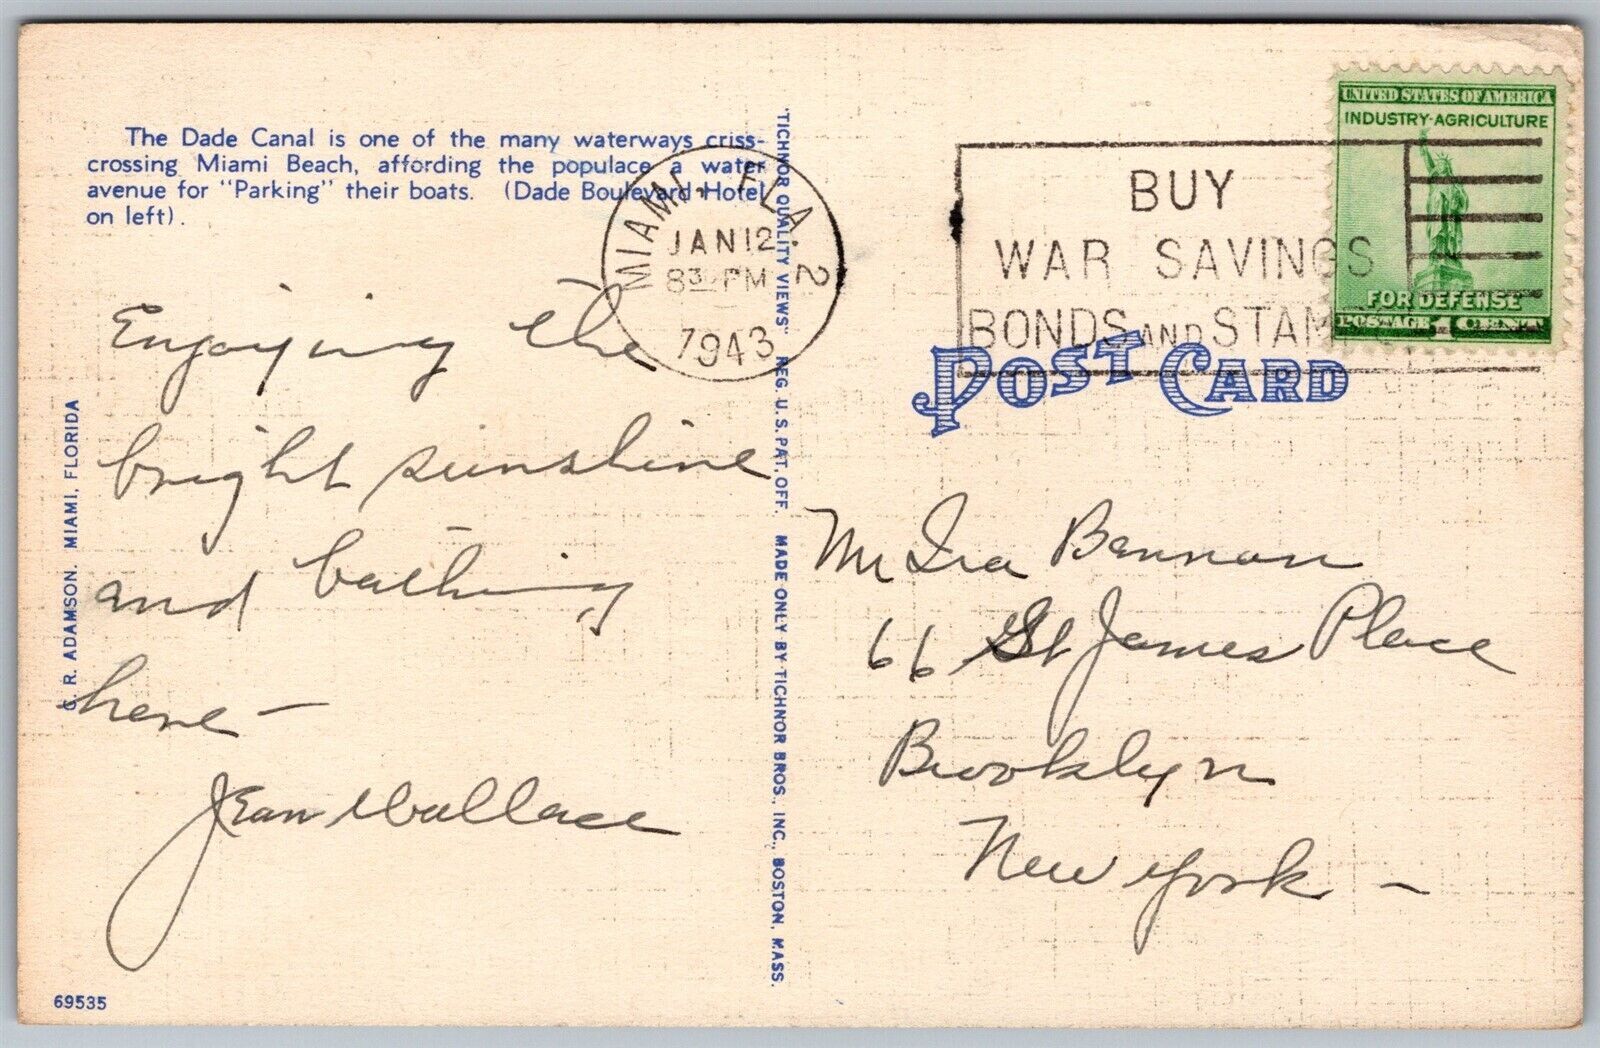 The Dade Canal is one of the many waterways criss-
crossing Miami Beach, affording the populace a water
avenue for "Parking" their boats. (Dade Boulevard Hotel
on left).
MIAMI, FLA. 2
JAN 12
8 30 PM
1943
BUY
WAR SAVINGS
BONDS AND STAMPS
UNITED STATES OF AMERICA
INDUSTRY-AGRICULTURE
FOR DEFENSE
POSTAGE 1 CENT
POST CARD
Enjoying the
bright sunshine
and bathing
here —
Jean Wallace
Mr Ira Bannon
66 St James Place
Brooklyn
New York —
G. R. ADAMSON. MIAMI, FLORIDA
"TICHNOR QUALITY VIEWS" REG. U. S. PAT. OFF. MADE ONLY BY TICHNOR BROS., INC., BOSTON, MASS.
69535